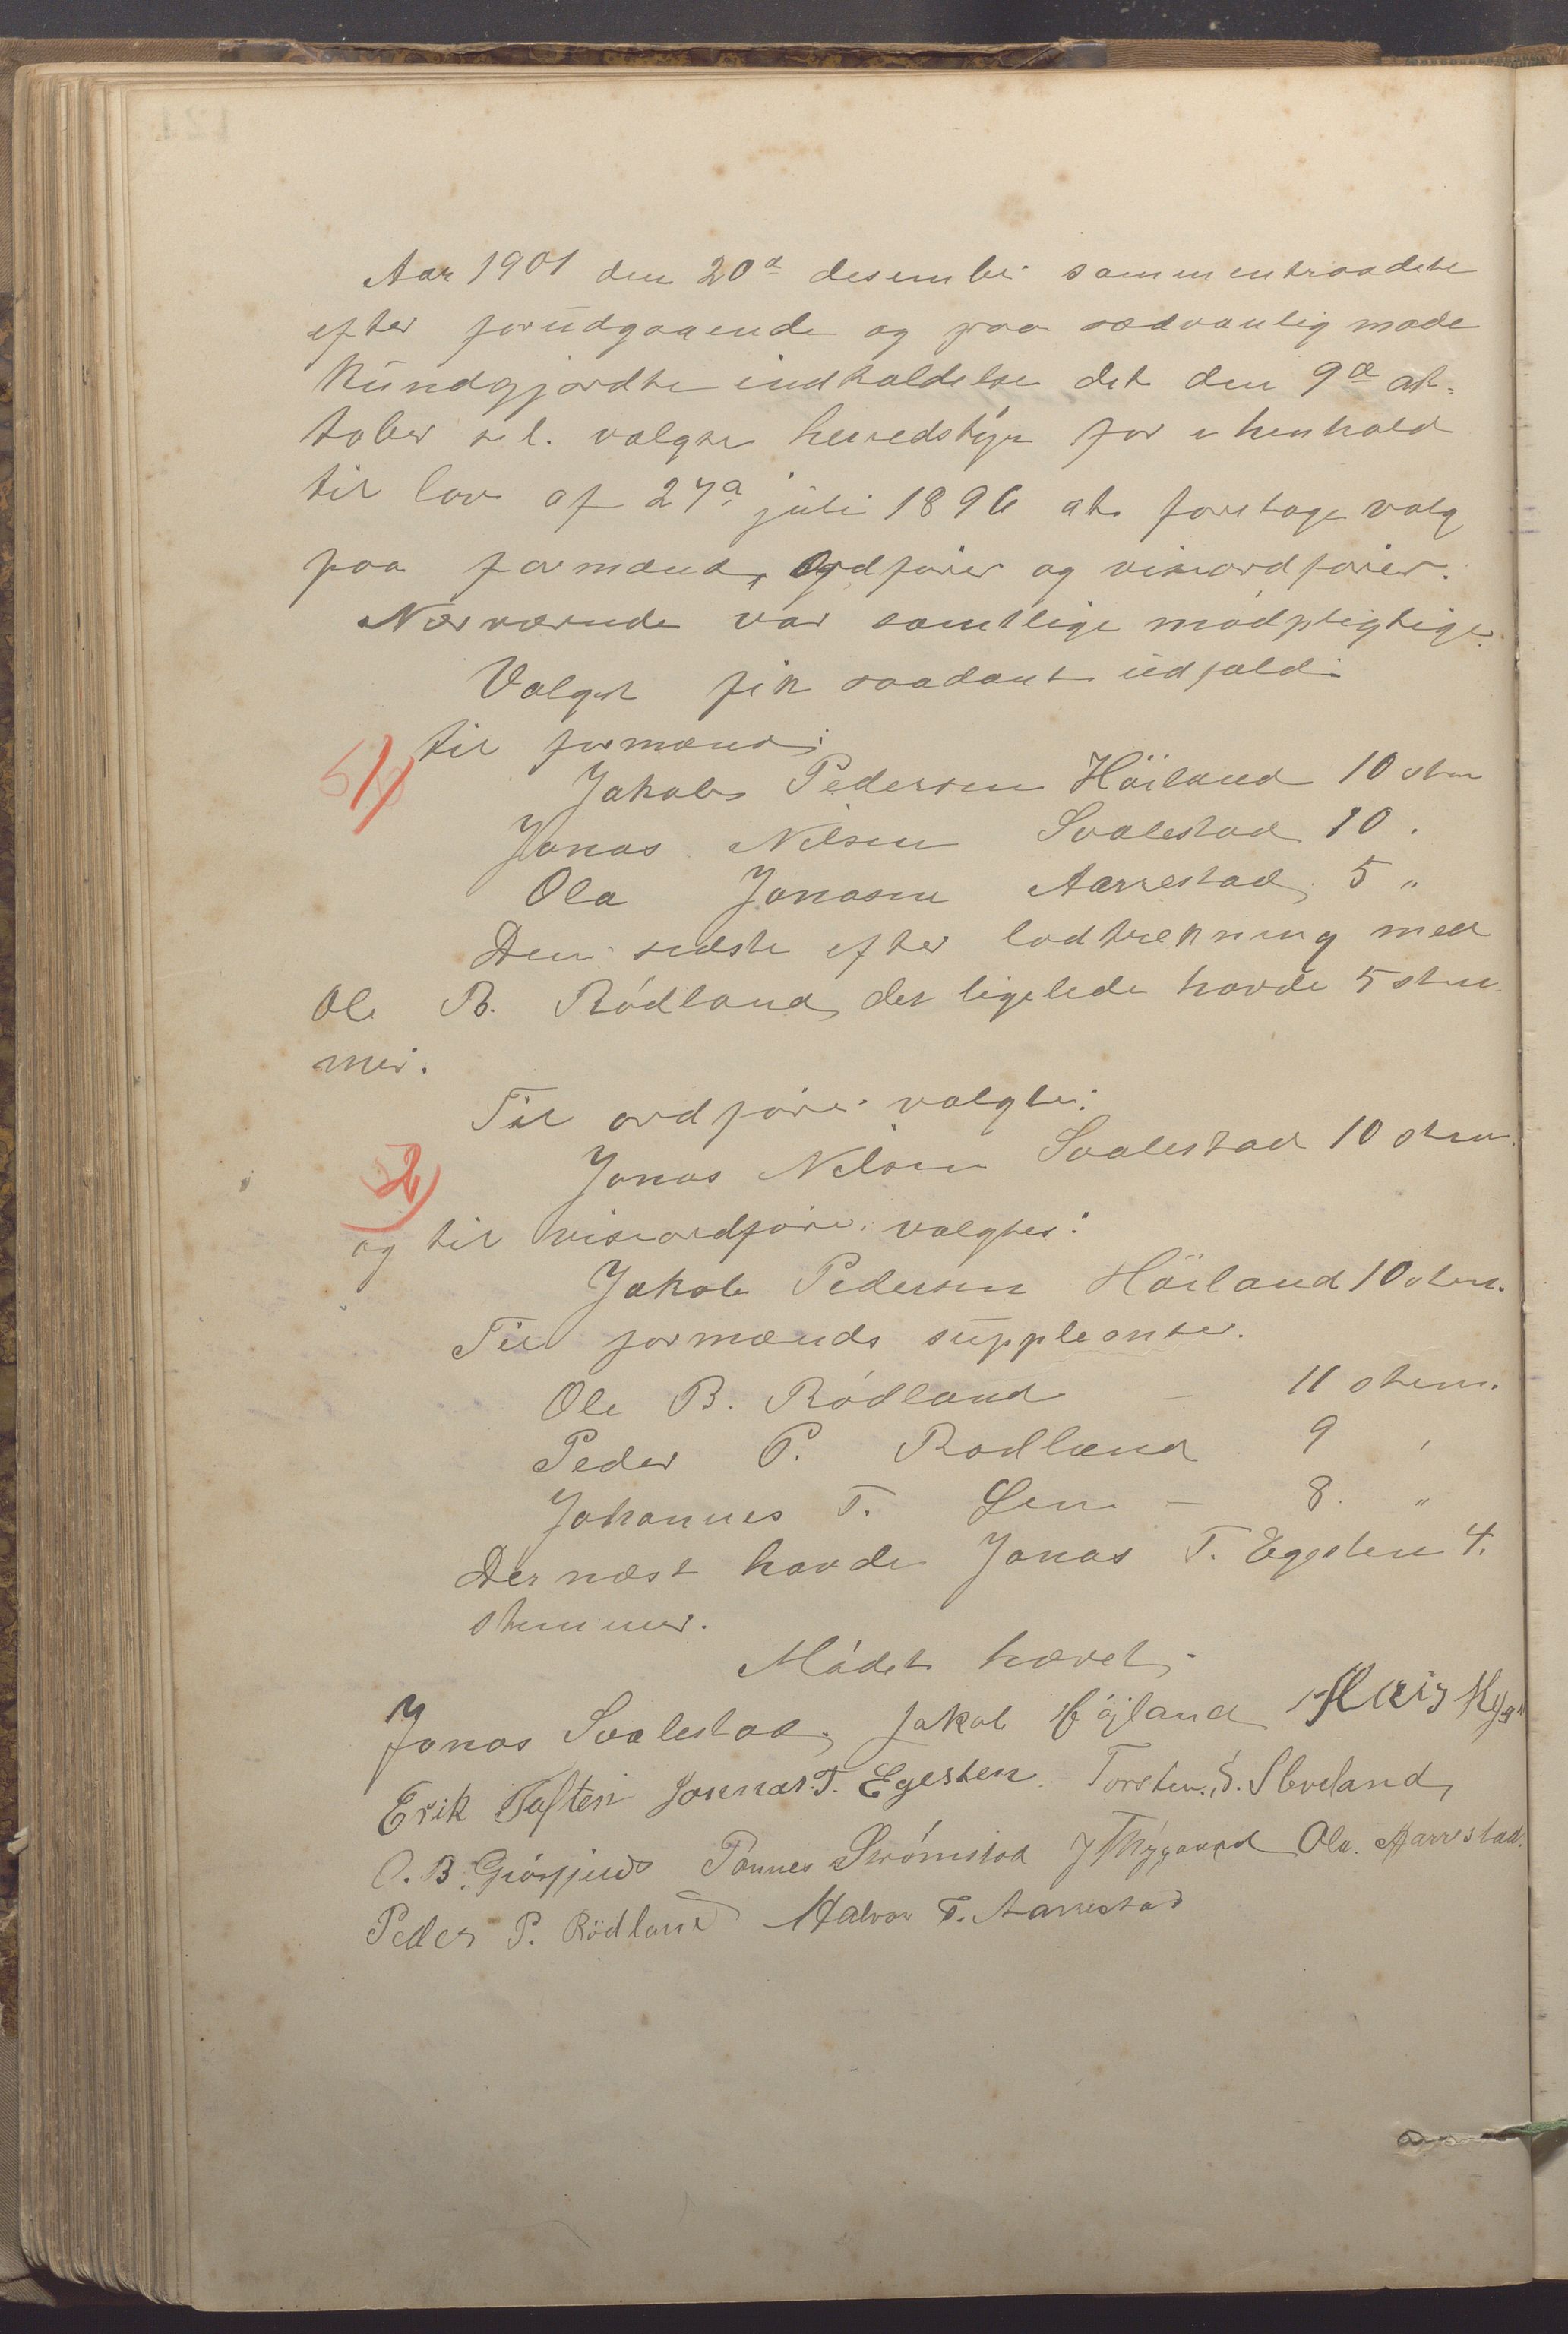 Aar 1901 den 20d desember sammentraadte
efter forudgaaende og paa sædvanlig made
kundgjordte indkaldelse det den 9de ok-
tober d. l. valgte herredstyre for i henhold
til lov af 27d juli 1896 at foretage valg
paa formænd, ordfører og viseordfører.
Nærværende var samtlige mødpligtige.
Valget fik saadant udfald:
til formænd:
Jakob Pedersen Höiland 10 stem
Jonas Nilsen Svalestad 10 .
Ola Jonasen Aarrestad 5 "
Den sidste efter lodtrekning med
Ole B. Rødland, der ligelede havde 5 stem-
mer.
Til ordfører valgtes:
2)
Jonas Nilsen Svalestad 10 stem.
og til viseordfører valgtes:
Jakob Pedersen Höiland 10 stem.
Til formænds suppleanter.
Ole B. Rødland - 11 stem.
Peder P. Rødland 9 "
Johannes T. Lem - 8. "
Dernæst havde Jonas T. Eggsten 4.
stemmer.
Mødet hævet.
Jonas Svalestad, Jakob Höjland
Erik Tuften Jonnas T. Egesten. Torsten S. Sleveland,
O. B. Strømstad Ola Aarrestad.
Peder P. Rödland Halvor T. Aarrestad